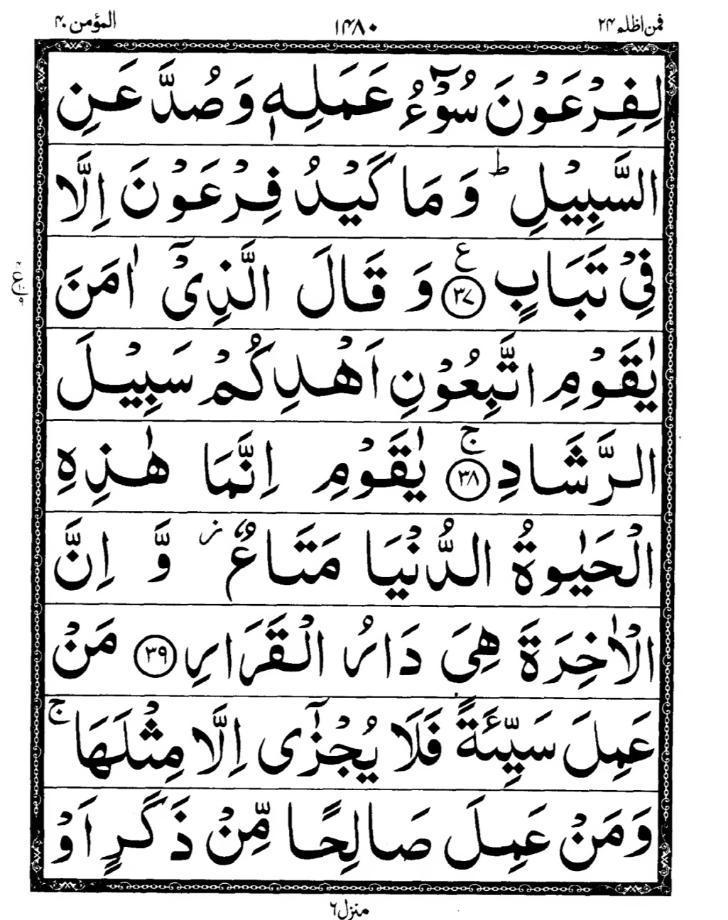 المؤمن ۴۰ ۱۴۸۰ فمن اظلم ۲۴
لِفِرْعَوْنَ سُوْٓءُ عَمَلِهٖ وَصُدَّ عَنِ
السَّبِيْلِ ؕ وَ مَا كَيْدُ فِرْعَوْنَ اِلَّا
فِيْ تَبَابٍ ﴿۳۷﴾ ع وَ قَالَ الَّذِيْۤ اٰمَنَ
يٰقَوْمِ اتَّبِعُوْنِ اَهْدِكُمْ سَبِيْلَ
الرَّشَادِ ﴿۳۸﴾ ۚ يٰقَوْمِ اِنَّمَا هٰذِهِ
الْحَيٰوةُ الدُّنْيَا مَتَاعٌ ؗ وَّ اِنَّ
الْاٰخِرَةَ هِيَ دَارُ الْقَرَارِ ﴿۳۹﴾ مَنْ
عَمِلَ سَيِّئَةً فَلَا يُجْزٰۤى اِلَّا مِثْلَهَا ۚ
وَمَنْ عَمِلَ صَالِحًا مِّنْ ذَكَرٍ اَوْ
منزل ۶